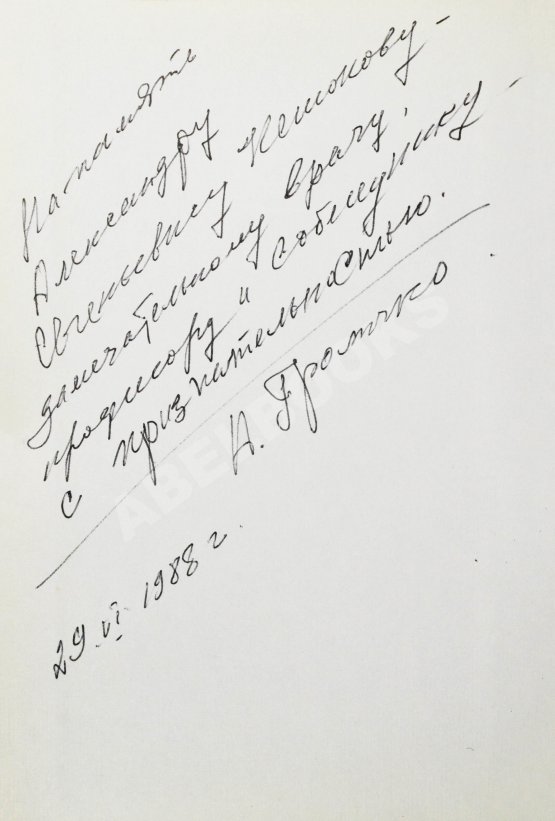 На память
Александру
Евгеньевичу Кешокову –
замечательному врачу,
профессору и собеседнику –
с признательностью.
А. Громыко
29. VI. 1988 г.
ABEBOOKS